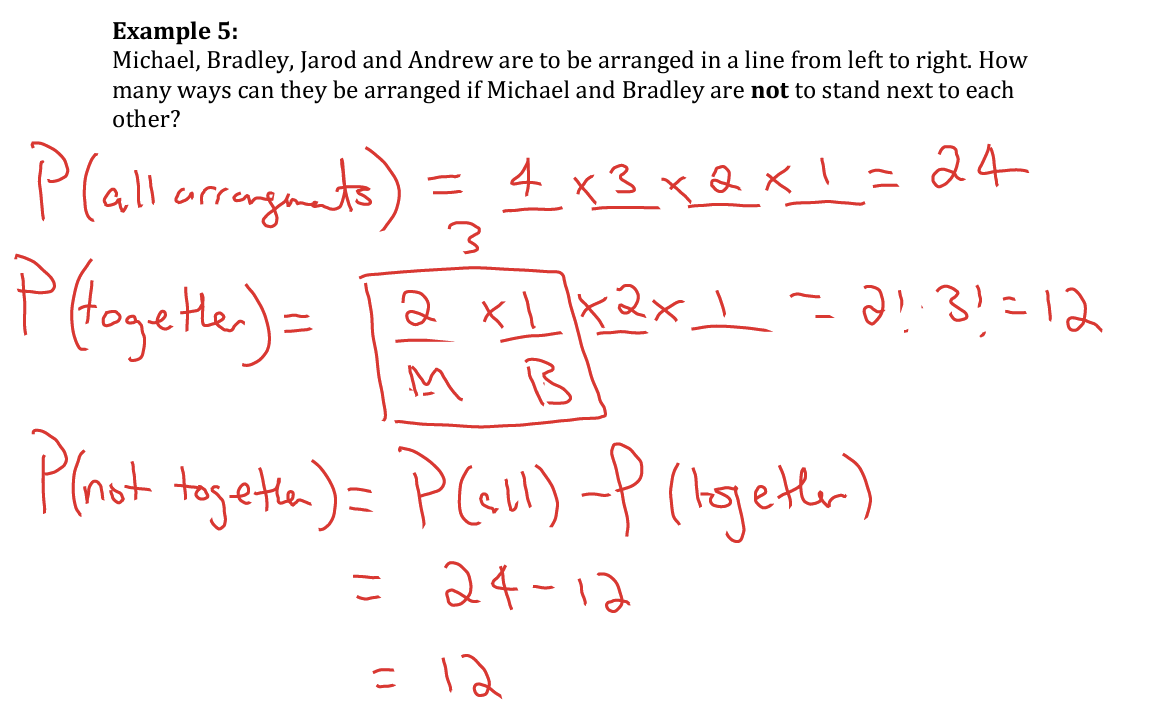 Example 5:
Michael, Bradley, Jarod and Andrew are to be arranged in a line from left to right. How
many ways can they be arranged if Michael and Bradley are not to stand next to each
other?
P(all arrangments) = 4 × 3 × 2 × 1 = 24
3
P(together) = 2 × 1 × 2 × 1 = 2! · 3! = 12
M B
P(not together) = P(all) - P(together)
= 24 - 12
= 12